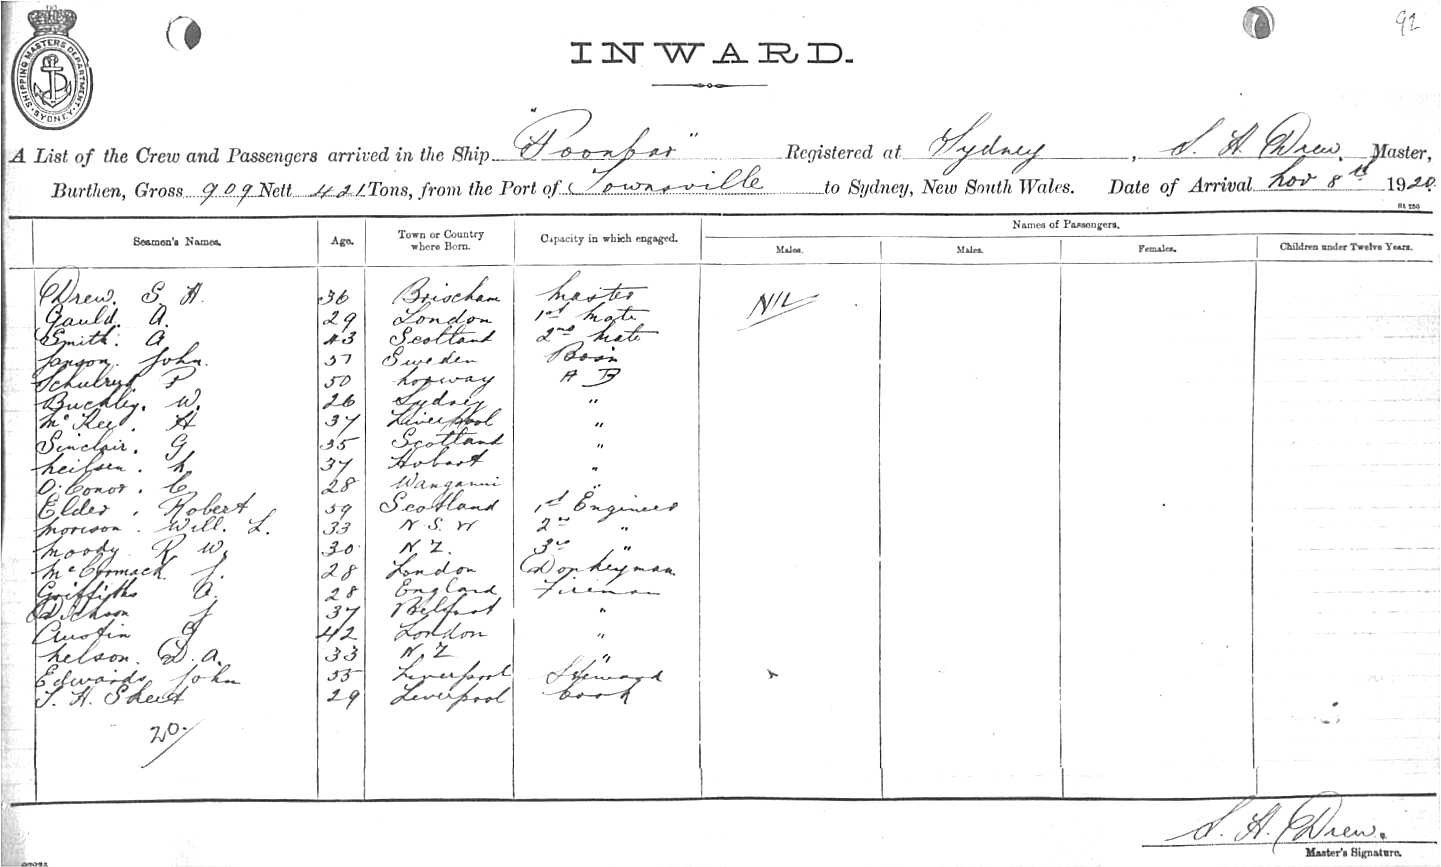 92
SHIPPING MASTERS DEPARTMENT. SYDNEY.
INWARD.
A List of the Crew and Passengers arrived in the Ship "Poonbar" Registered at Sydney, S. A. Drew. Master,
Burthen, Gross 909 Nett 421 Tons, from the Port of Townsville to Sydney, New South Wales. Date of Arrival Nov 8th 1920.
Seamen's Names. Age. Town or Country where Born. Capacity in which engaged. Names of Passengers.
Males. Males. Females. Children under Twelve Years.
Drew. S. A. 36 Brixham Master NIL
Gauld. A. 29 London 1st Mate
Smith. A 43 Scotland 2nd Mate
Janson. John. 57 Sweden Bosn
P 50 Norway A B
Buckley. W. 26 Sydney "
McKee. H 37 Liverpool "
Sinclair. G 35 Scotland "
Neilsen. N. 37 Hobart "
O'Conor. C 28 Wanganui "
Elder. Robert 59 Scotland 1st Engineer
Morison. Will. L. 33 N. S. W 2nd "
Moody R. W. 30 N. Z. 3rd "
McCormack J. 28 London Donkeyman
Griffiths A. 28 England Fireman
Dickson J 37 Belfast "
Austin G 42 London "
Nelson. D. A. 33 N. Z "
Edwards John 55 Liverpool Steward
T. H. 29 Liverpool Cook
20.
S. A. Drew.
Master's Signature.